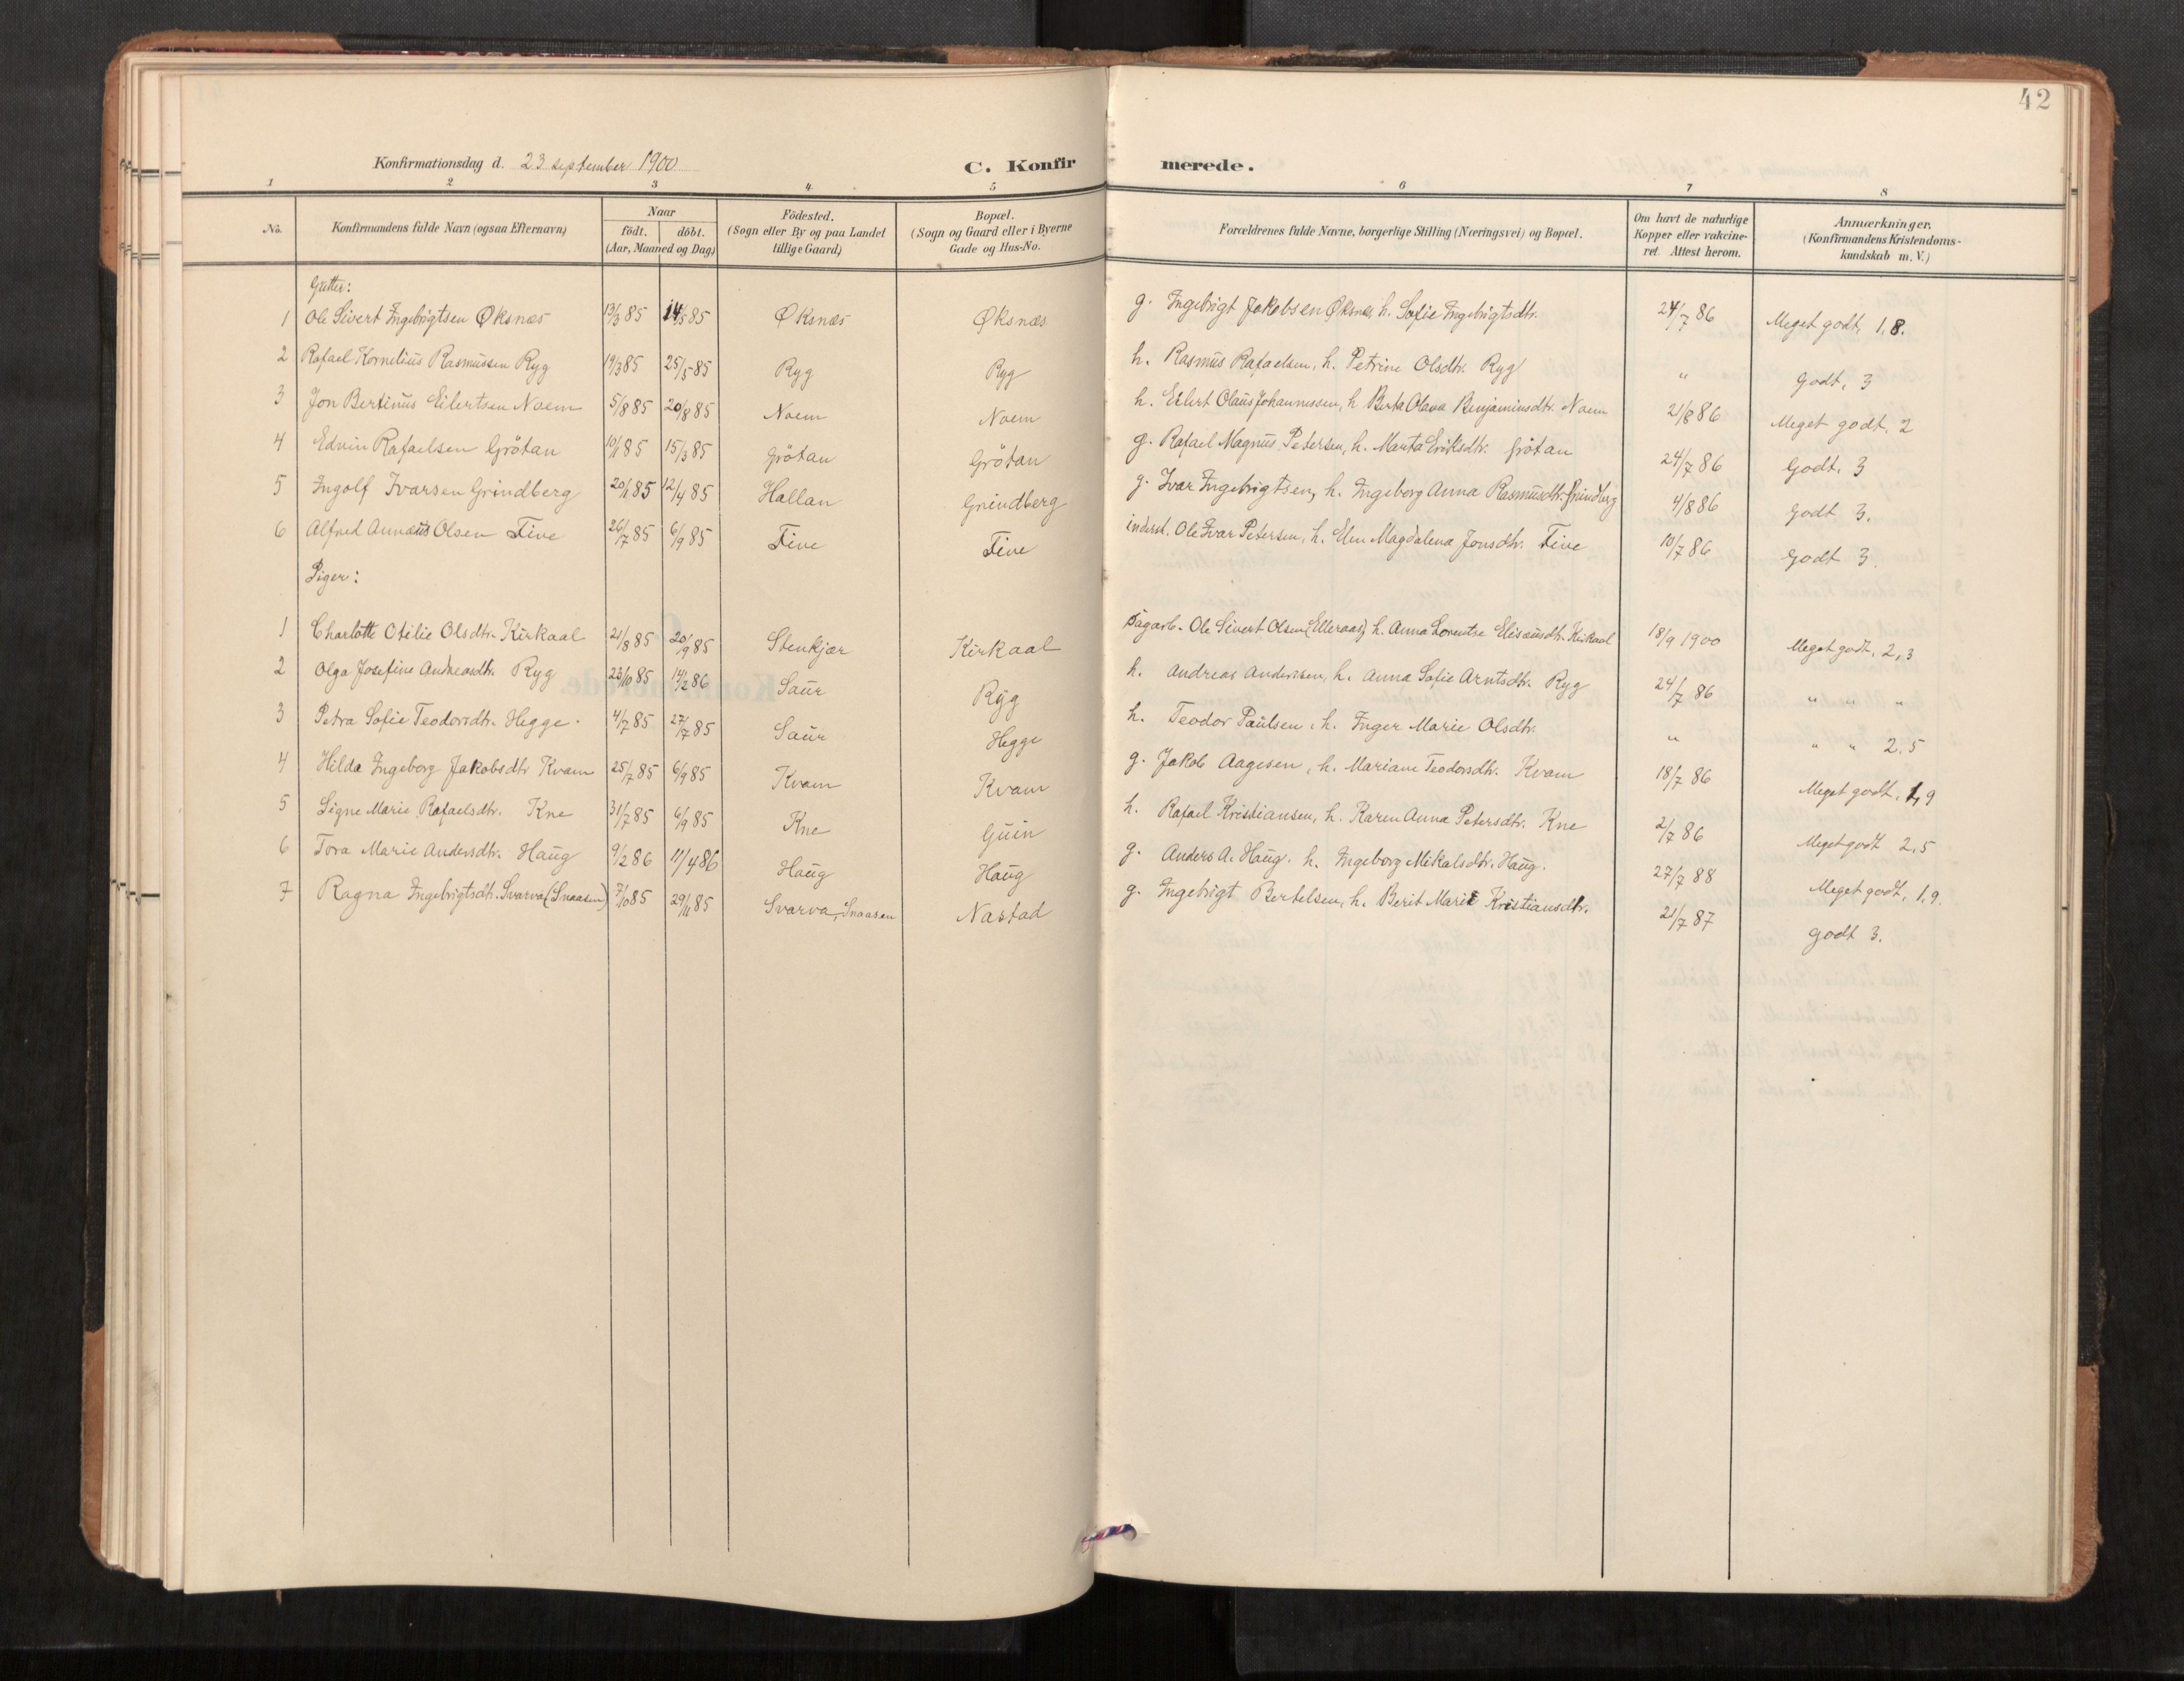 42
Konfirmationsdag d. 23 september 1900
C. Konfirmerede.
1 2 3 4 5 6 7 8
No. Konfirmandens fulde Navn (ogsaa Efternavn) Naar født. døbt. (Aar, Maaned og Dag) Fødested. (Sogn eller By og paa Landet tillige Gaard) Bopæl. (Sogn og Gaard eller i Byerne Gade og Hus-No. Forældrenes fulde Navne, borgerlige Stilling (Næringsvei) og Bopæl. Om havt de naturlige Kopper eller vakcineret. Attest herom. Anmærkninger. (Konfirmandens Kristendomskundskab m. V.)
Gutter:
1 Ole Sivert Ingebrigtsen Øksnæs 13/3 85 14/5 85 Øksnæs Øksnæs g. Ingebrigt Jakobsen Øksnæs, h. Sofie Ingebrigtsdtr. 24/7 86 Meget godt, 1.8.
2 Rafael Kornelius Rasmussen Ryg 19/3 85 25/5 85 Ryg Ryg h. Rasmus Rafaelsen, h. Petrine Olsdtr. Ryg " Godt, 3
3 Jon Bertinus Eilertsen Noem 5/8 85 20/8 85 Noem Noem h. Eilert Olaus Johannessen, h Berta Olava Benjaminsdtr. Noem 21/8 86 Meget godt. 2
4 Edvin Rafaelsen Grötan 10/1 85 15/3 85 Grötan Grötan g. Rafael Magnus Petersen, h. Marta Eriksdtr. Grötan 24/7 86 Godt. 3
5 Ingolf Ivarsen Grindberg 20/1 85 12/4 85 Hallan Grindberg g. Ivar Ingebrigtsen, h. Ingeborg Anna Rasmusdtr. Grindberg 4/8 86 Godt 3.
6 Alfred Annæus Olsen Five 26/7 85 6/9 85 Five Five inderst. Ole Ivar Petersen, h. Elen Magdalena Jonsdtr. Five 10/7 86 Godt 3.
Piger:
1 Charlotte Otilie Olsdtr. Kirkaal 21/8 85 20/9 85 Stenkjær Kirkaal Dagarb. Ole Sivert Olsen (Elleraas) h. Anna Lorentse Elisæusdtr. Kirkaal 18/9 1900 Meget godt, 2,3
2 Olga Josefine Andreasdtr. Ryg 23/10 85 14/2 86 Saur Ryg h. Andreas Andersen, h. Anna Sofie Arntsdtr. Ryg 24/7 86 " " "
3 Petra Sofie Teodorsdtr. Hegge. 4/7 85 27/7 85 Saur Hegge h. Teodor Paulsen, h. Inger Marie Olsdtr. " " " 2.5
4 Hilda Ingeborg Jakobsdtr Kvam 25/7 85 6/9 85 Kvam Kvam g. Jakob Aagesen, h. Mariane Teodorsdtr. Kvam 18/7 86 Meget godt. 1,9
5 Signe Marie Rafaelsdtr. Kne 31/7 85 6/9 85 Kne Guin h. Rafael Kristiansen, h. Karen Anna Petersdtr. Kne 2/7 86 Meget godt 2,5
6 Tora Marie Andersdtr. Haug 9/2 86 11/4 86 Haug Haug g. Anders A. Haug. h. Ingeborg Mikalsdtr. Haug. 27/7 88 Meget godt, 1,9.
7 Ragna Ingebrigtsdt. Svarva (Snaasen) 7/10 85 29/11 85 Svarva, Snaasen Nastad g. Ingebrigt Bertelsen, h. Berit Marie Kristiansdtr. 21/7 87 godt 3.